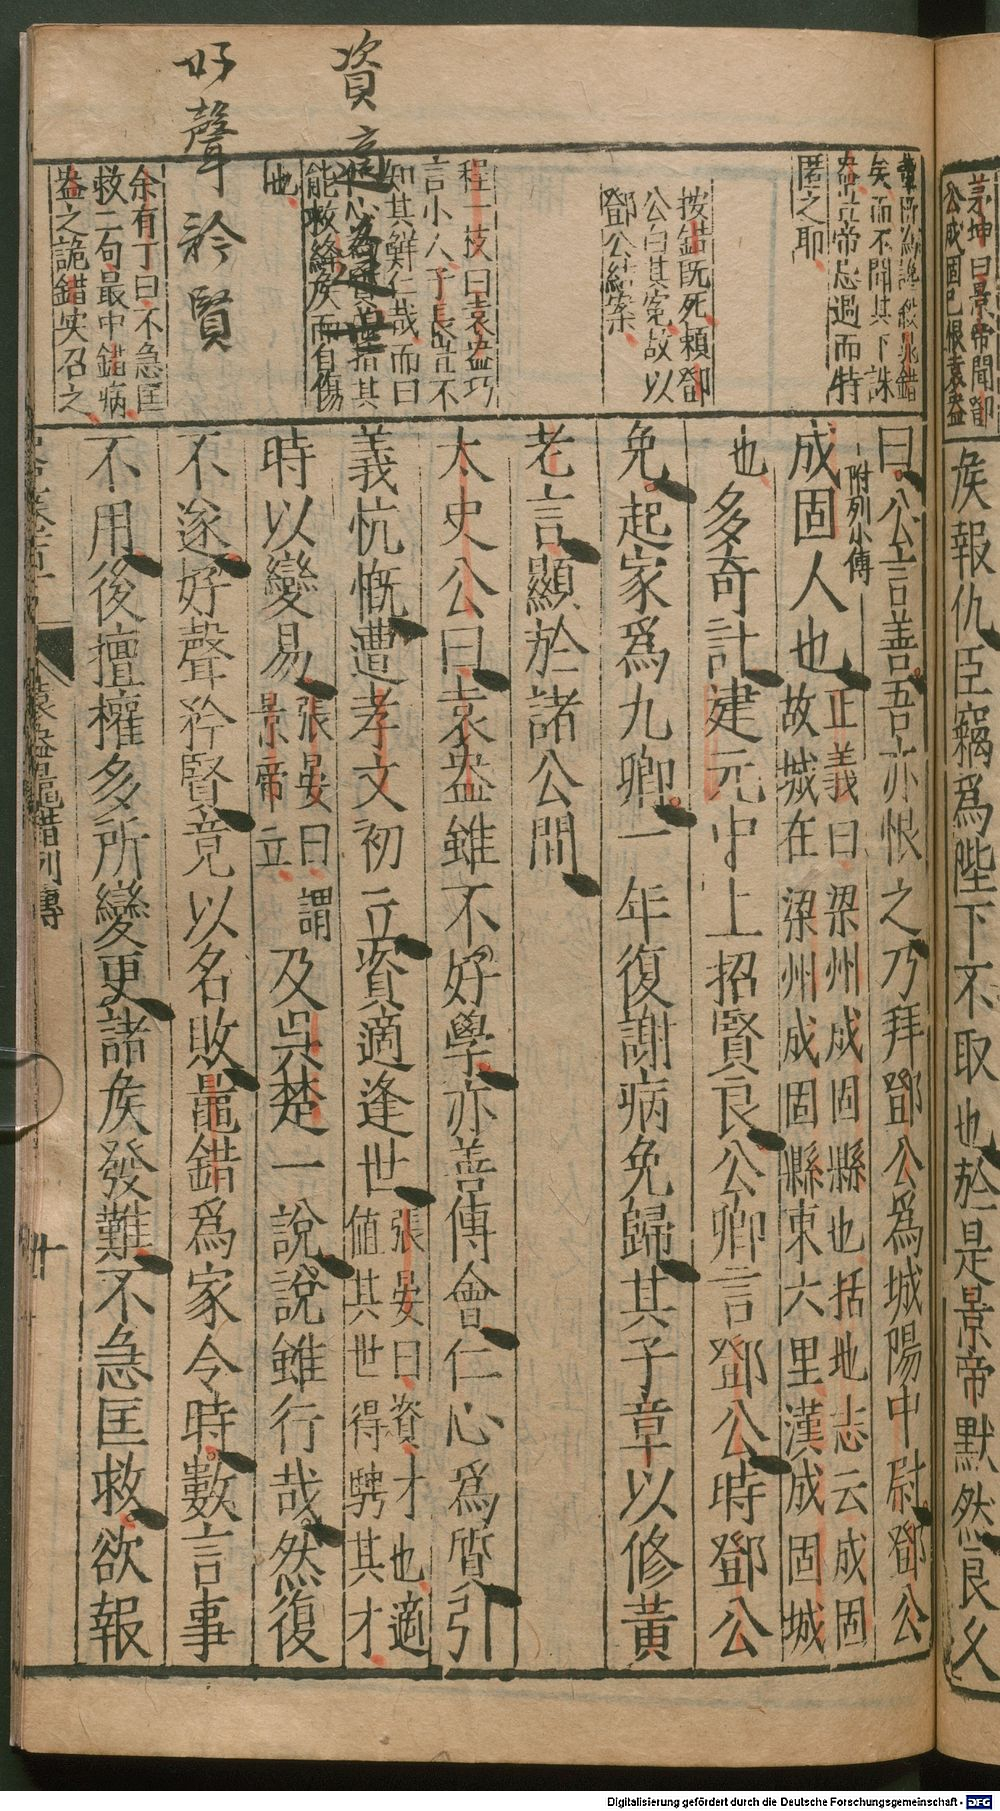 茅坤曰景帝聞鄧
公成固已恨袁盎
矣而不聞其下誅
盎豈帝忌過而特
匿之耶
按錯既死賴鄧
公白其寃故以
鄧公結案
程一枝曰袁盎巧
言小人子長豈不
知其鮮仁哉而曰
能救絳矦而自傷
也
余有丁曰不急匡
救二句最中錯病
盎之詭錯实召之
資適逢世
好聲矜賢
矦報仇臣竊爲陛下不取也於是景帝默然良久
曰公言善吾亦恨之乃拜鄧公爲城陽中尉鄧公
附列小傳
成固人也正義曰梁州成固縣也括地志云成固
故城在梁州成固縣東六里漢成固城
也多奇計建元中上招賢良公卿言鄧公時鄧公
免起家爲九卿一年復謝病免歸其子章以修黃
老言顯於諸公間
太史公曰袁盎雖不好學亦善傅會仁心爲質引
義忼慨遭孝文初立資適逢世張晏曰資才也適
値其世得騁其才
時以變易張晏曰謂
景帝立及吳楚一說說雖行哉然復
不遂好聲矜賢竟以名敗鼂錯爲家令時數言事
不用後擅權多所變更諸矦發難不急匡救欲報
袁盎鼂錯列傳
廿
Digitalisierung gefördert durch die Deutsche Forschungsgemeinschaft - DFG